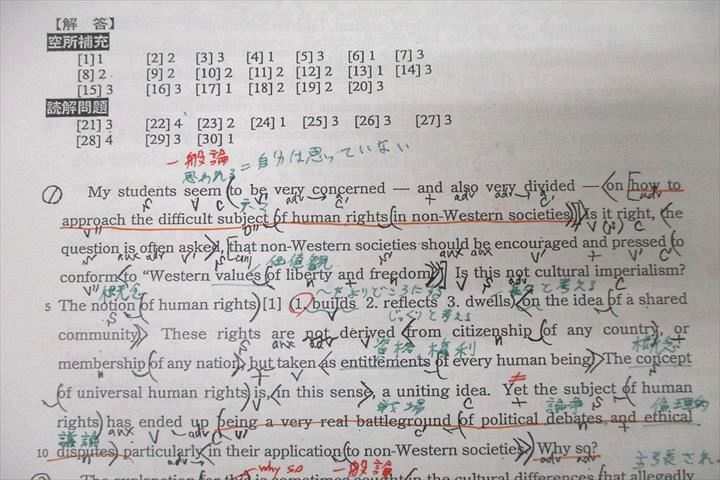 【解 答】
空所補充
[1] 1 [2] 2 [3] 3 [4] 1 [5] 3 [6] 1 [7] 3
[8] 2 [9] 2 [10] 2 [11] 2 [12] 2 [13] 1 [14] 3
[15] 3 [16] 3 [17] 1 [18] 2 [19] 2 [20] 3
読解問題
[21] 3 [22] 4 [23] 2 [24] 1 [25] 3 [26] 3 [27] 3
[28] 4 [29] 3 [30] 1
一般論
思われる = 自分は思っていない
① My students seem to be very concerned — and also very divided — on how to
テーマ
approach the difficult subject of human rights in non-Western societies. Is it right, the
question is often asked, that non-Western societies should be encouraged and pressed to
価値観
conform to “Western values of liberty and freedom”? Is this not cultural imperialism?
概念 〜によりどころにする
5 The notion of human rights [1] 1. builds 2. reflects 3. dwells on the idea of a shared
じっくり考える
community. These rights are not derived from citizenship of any country, or
資格 権利
membership of any nation, but taken as entitlements of every human being. The concept
概念
of universal human rights is, in this sense, a uniting idea. Yet the subject of human
戦場 論争 倫理的
rights has ended up being a very real battleground of political debates and ethical
議論
10 disputes, particularly in their application to non-Western societies. Why so?
why so 一般論
The explanation for this is sometimes sought in the cultural differences that allegedly